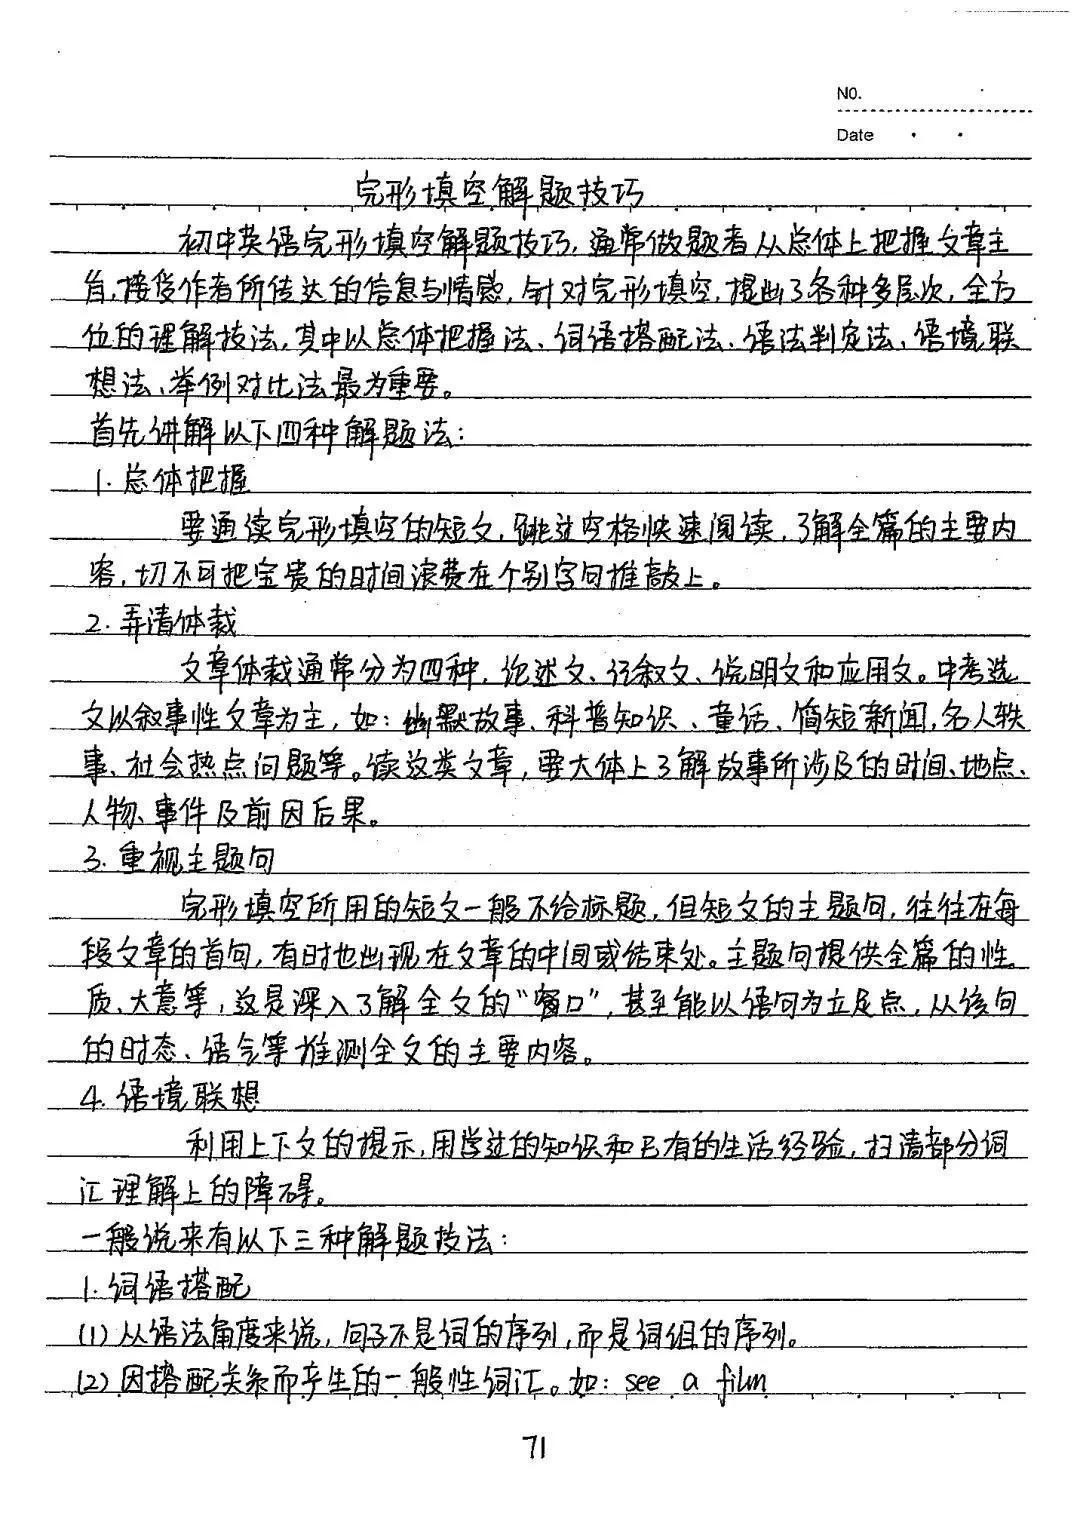 NO.
Date
完形填空解题技巧
初中英语完形填空解题技巧,通常做题者从总体上把握文章主
旨,接受作者所传达的信息与情感,针对完形填空,提出了各种多层次,全方
位的理解技法,其中以总体把握法、词语搭配法、语法判定法、语境联
想法、举例对比法最为重要。
首先讲解以下四种解题法:
1.总体把握
要通读完形填空的短文,跳过空格快速阅读,了解全篇的主要内
容,切不可把宝贵的时间浪费在个别字句推敲上。
2.弄清体裁
文章体裁通常分为四种,论述文、记叙文、说明文和应用文。中考选
文以叙事性文章为主,如:幽默故事、科普知识、童话、简短新闻,名人轶
事、社会热点问题等。读这类文章,要大体上了解故事所涉及的时间、地点、
人物、事件及前因后果。
3.重视主题句
完形填空所用的短文一般不给标题,但短文的主题句,往往在每
段文章的首句,有时也出现在文章的中间或结束处。主题句提供全篇的性
质、大意等,这是深入了解全文的“窗口”,甚至能以语句为立足点,从该句
的时态、语合等推测全文的主要内容。
4.语境联想
利用上下文的提示,用学过的知识和已有的生活经验,扫清部分词
汇理解上的障碍。
一般说来有以下三种解题技法:
1.词语搭配
(1)从语法角度来说,句子不是词的序列,而是词组的序列。
(2)因搭配关系而产生的一般性词汇。如:see a film
71